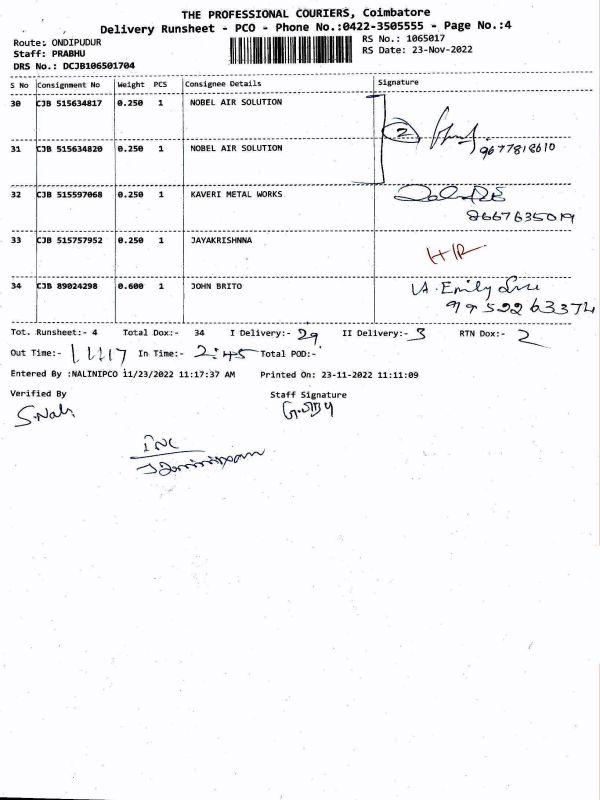 THE PROFESSIONAL COURIERS, Coimbatore
Delivery Runsheet - PCO - Phone No.:0422-3505555 - Page No.:4
Route: ONDIPUDUR
RS No.: 1065017
Staff: PRABHU
RS Date: 23-Nov-2022
DRS No.: DCJB106501704
S No Consignment No Weight PCS Consignee Details Signature
30 CJB 515634817 0.250 1 NOBEL AIR SOLUTION
2
31 CJB 515634820 0.250 1 NOBEL AIR SOLUTION 9677818610
32 CJB 515597068 0.250 1 KAVERI METAL WORKS
8667635019
33 CJB 515757952 0.250 1 JAYAKRISHNNA
34 CJB 89024298 0.600 1 JOHN BRITO A. Emily
9952263374
Tot. Runsheet:- 4 Total Dox:- 34 I Delivery:- 29 II Delivery:- 3 RTN Dox:- 2
Out Time:- 11:17 In Time:- 2:45 Total POD:-
Entered By :NALINIPCO 11/23/2022 11:17:37 AM Printed On: 23-11-2022 11:11:09
Verified By Staff Signature
S.Nali
INC